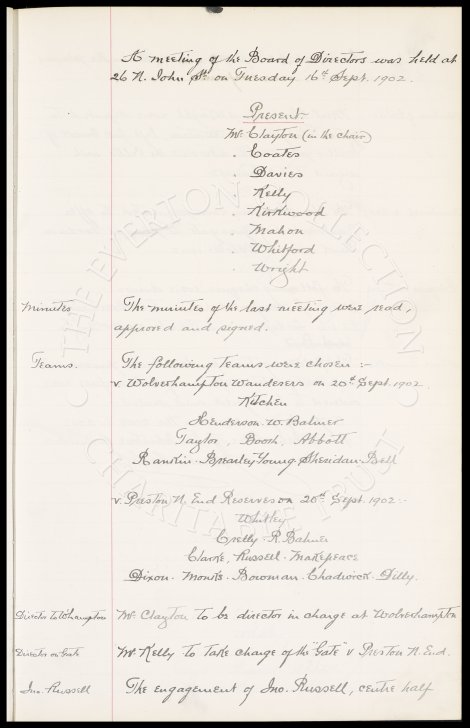 A meeting of the Board of Directors was held at
26 N. John St. on Tuesday 16th Sept. 1902.
Present:-
Mr Clayton (in the chair)
" Coates
" Davies
" Kelly
" Kirkwood
" Mahon
" Whitford
" Wright
Minutes The minutes of the last meeting were read,
approved and signed.
Teams. The following Teams were chosen :-
v Wolverhampton Wanderers on 20th Sept. 1902.
Kitchen
Henderson. W. Balmer
Taylor, Booth, Abbott
Rankin. Brearley. Young. Sheridan. Bell
v. Preston N. End Reserves on 20th Sept. 1902:-
Whitley
Crelly. R. Balmer
Clarke, Russell. Makepeace
Dixon. Monks. Bowman. Chadwick. Dilly.
Director to W'hampton Mr. Clayton to be director in charge at Wolverhampton
Director on Gate Mr. Kelly to take charge of the "Gate" v Preston N. End.
Jno. Russell The engagement of Jno. Russell, centre half
THE EVERTON COLLECTION CHARITABLE TRUST